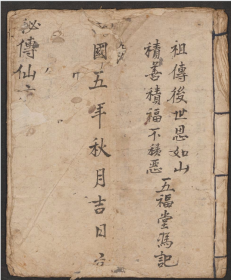 祖傳後世恩如山
積善積福不積惡
五福堂馮記
國五年秋月吉日
祕傳仙